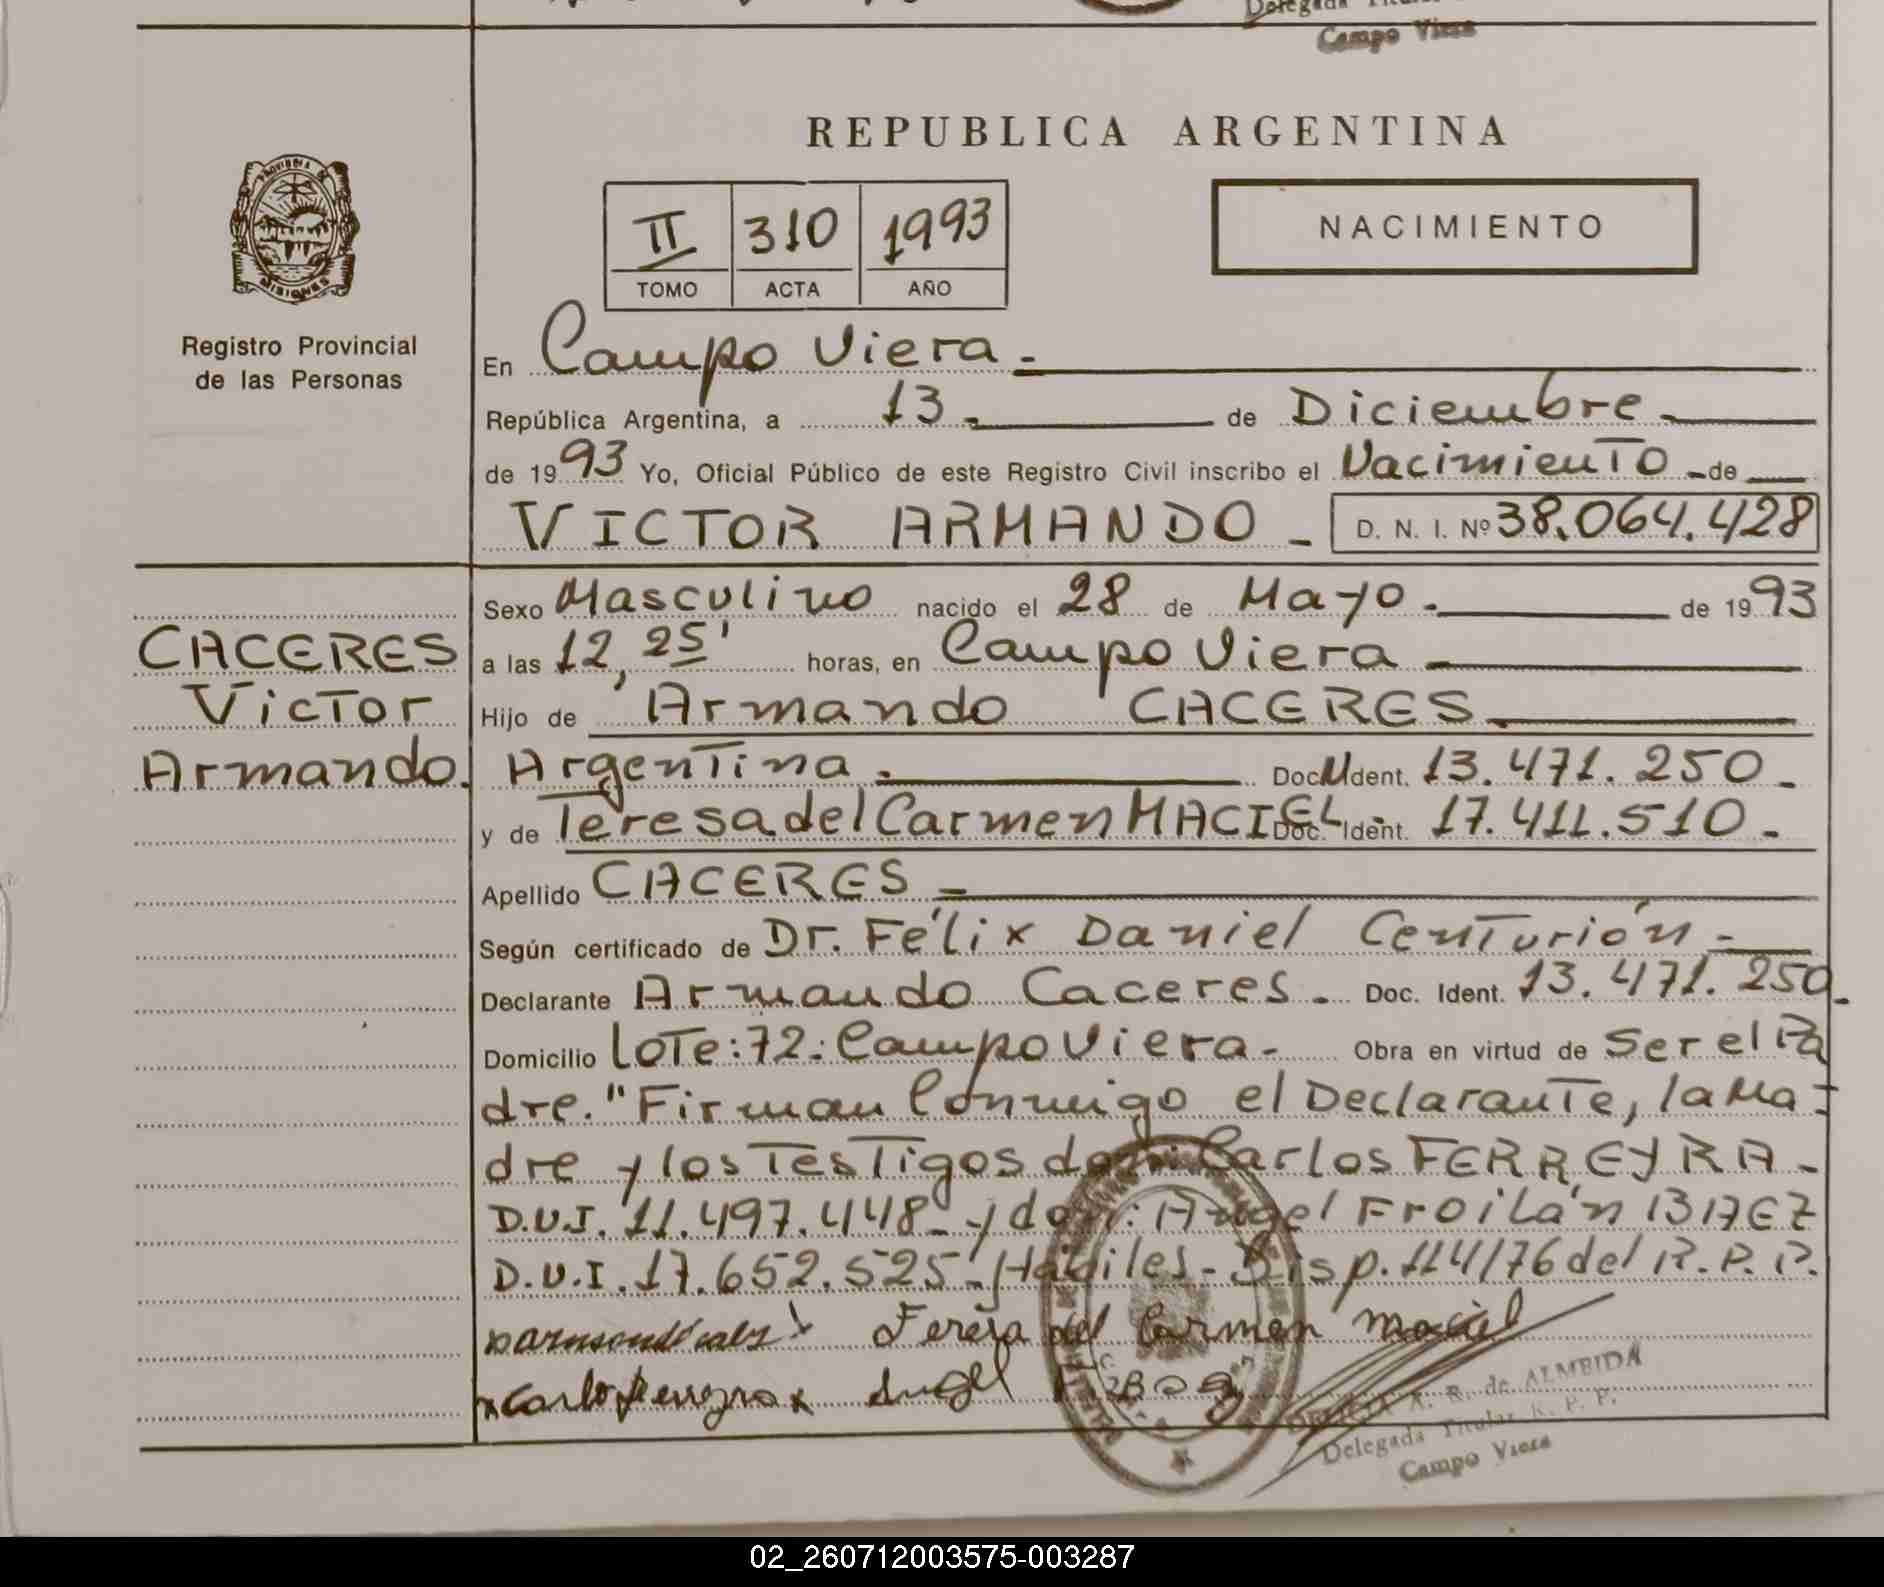 Delegada Titular
Campo Viera
REPUBLICA ARGENTINA
PROVINCIA DE
MISIONES
Registro Provincial
de las Personas
II 310 1993
TOMO ACTA AÑO
NACIMIENTO
En Campo Viera.-
República Argentina, a 13.- de Diciembre.-
de 1993 Yo, Oficial Público de este Registro Civil inscribo el Nacimiento - de
VICTOR ARMANDO - D. N. I. Nº 38.064.428
CACERES
Victor
Armando.
Sexo Masculino nacido el 28 de Mayo.- de 1993
a las 12,25' horas, en Campo Viera -
Hijo de Armando CACERES.-
Argentina.- Doc. Ident. 13.471.250.-
y de Teresa del Carmen MACIEL.- Doc. Ident. 17.411.510.-
Apellido CACERES -
Según certificado de Dr. Félix Daniel Centurión -
Declarante Armando Caceres.- Doc. Ident. 13.471.250.-
Domicilio Lote:72: Campo Viera.- Obra en virtud de ser el Pa
dre." Firman Conmigo el Declarante, la Ma-
dre y los Testigos don: Carlos FERREYRA -
D.N.I. 11.497.448- y don: Angel Froilán BAEZ
D.N.I. 17.652.525- Hábiles- Disp. 114/76 del R.P.P.
Teresa del Carmen Maciel
x Carlos Ferreyra x Angel
A. R. de ALMEIDA
Delegada Titular R. P. P.
Campo Viera
02_260712003575-003287